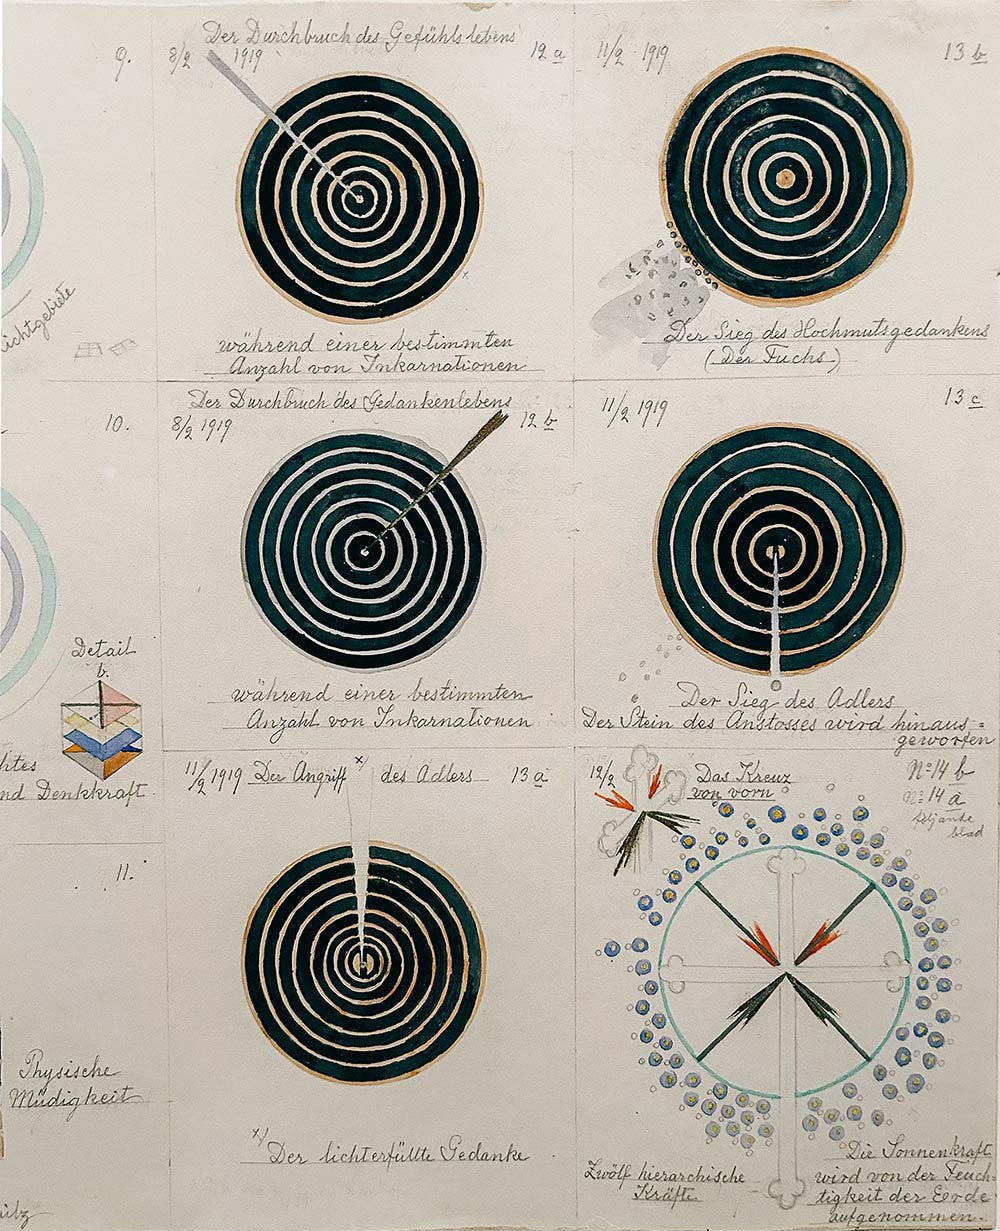 9.
Detail
b.
10.
nd Denkkraft.
11.
Physische
Müdigkeit
Der Durchbruch des Gefühlslebens
8/2 1919
12 a
während einer bestimmten
Anzahl von Inkarnationen
Der Durchbruch des Gedankenlebens
8/2 1919
12 b
während einer bestimmten
Anzahl von Inkarnationen
11/2 1919 Der Angriff x/ des Adlers 13 a
x/ Der lichterfüllte Gedanke
11/2 1919
13 b
Der Sieg des Hochmutsgedankens
(Der Fuchs)
11/2 1919
13 c
Der Sieg des Adlers
Der Stein des Anstosses wird hinaus=
geworfen
12/2
Das Kreuz
von vorn
No 14 b
No 14 a
följande
blad
Zwölf hierarchische
Kräfte.
Die Sonnenkraft
wird von der Feuch-
tigkeit der Erde
aufgenommen.